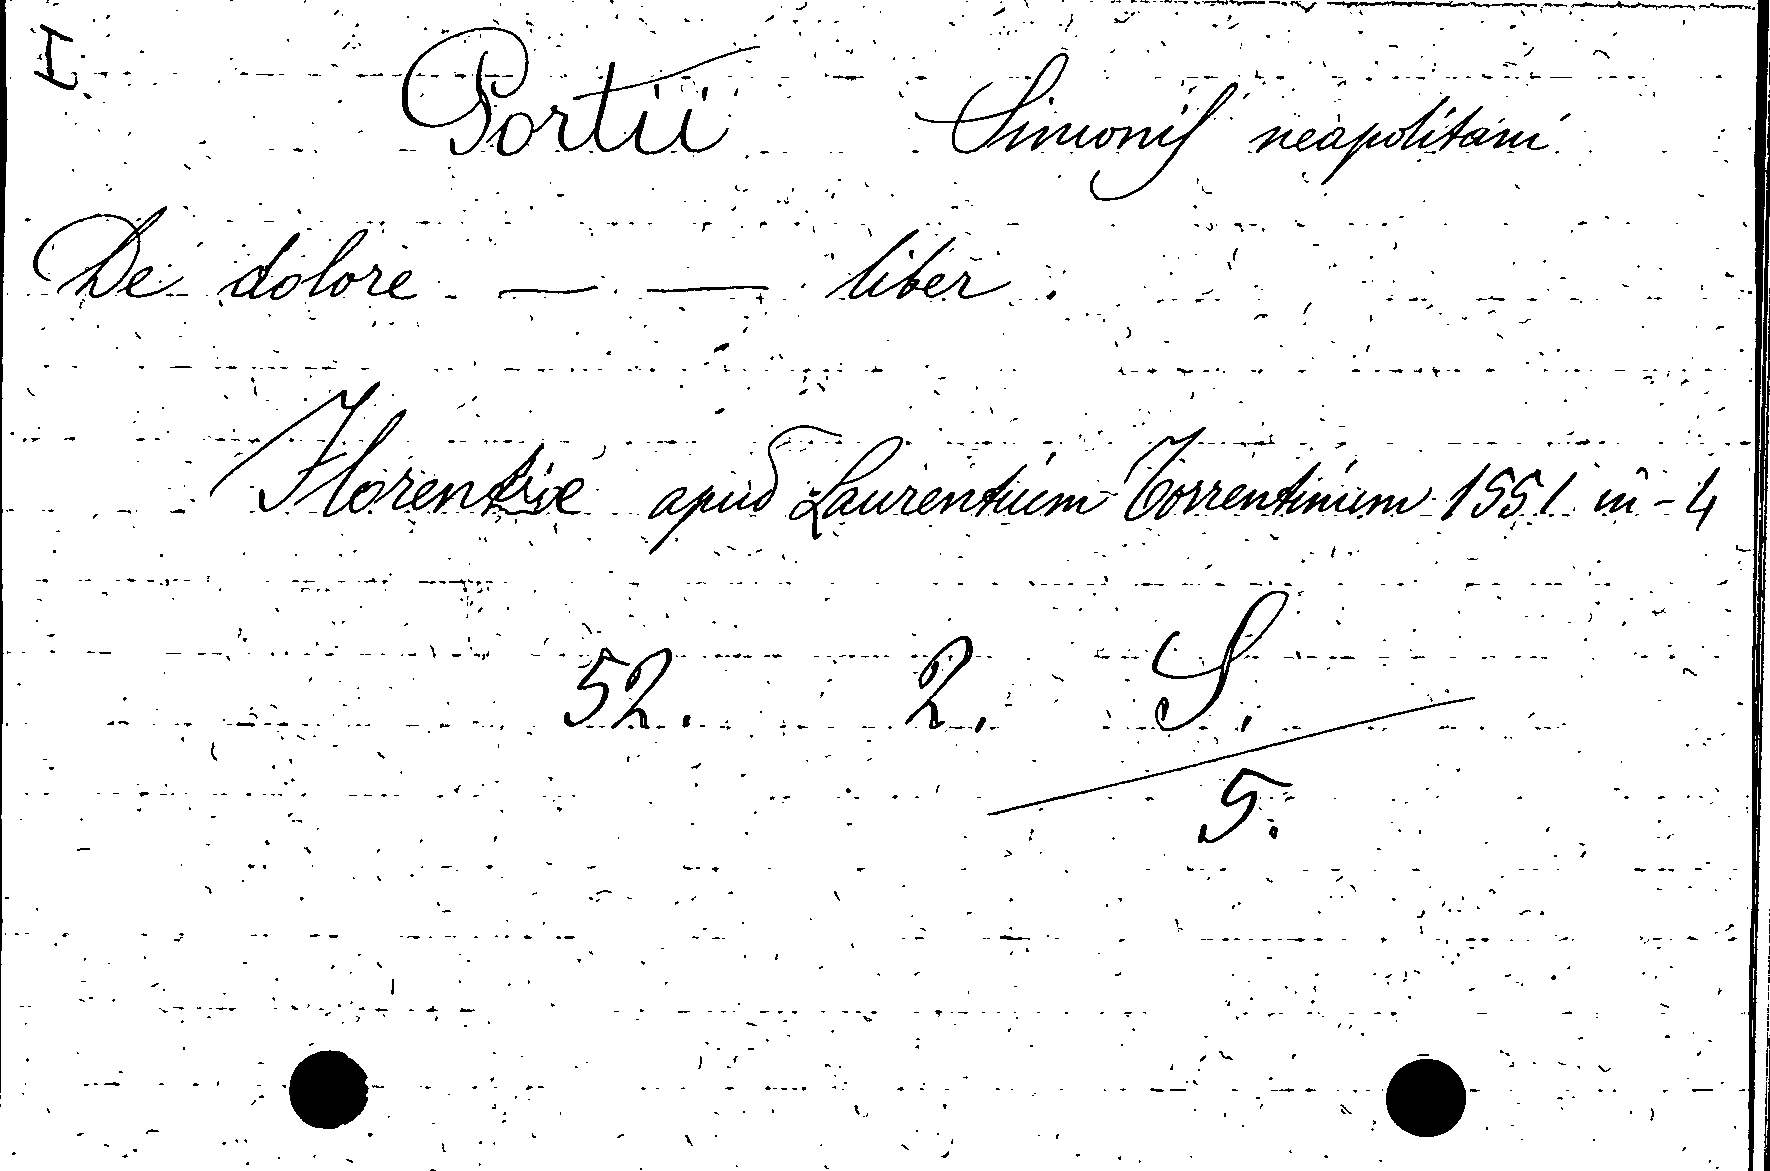 I
Portii Simonis neapolitani
De dolore — — liber.
Florentiæ apud Laurentium Torrentinum 1551 in-4
52. 2. S.
5.